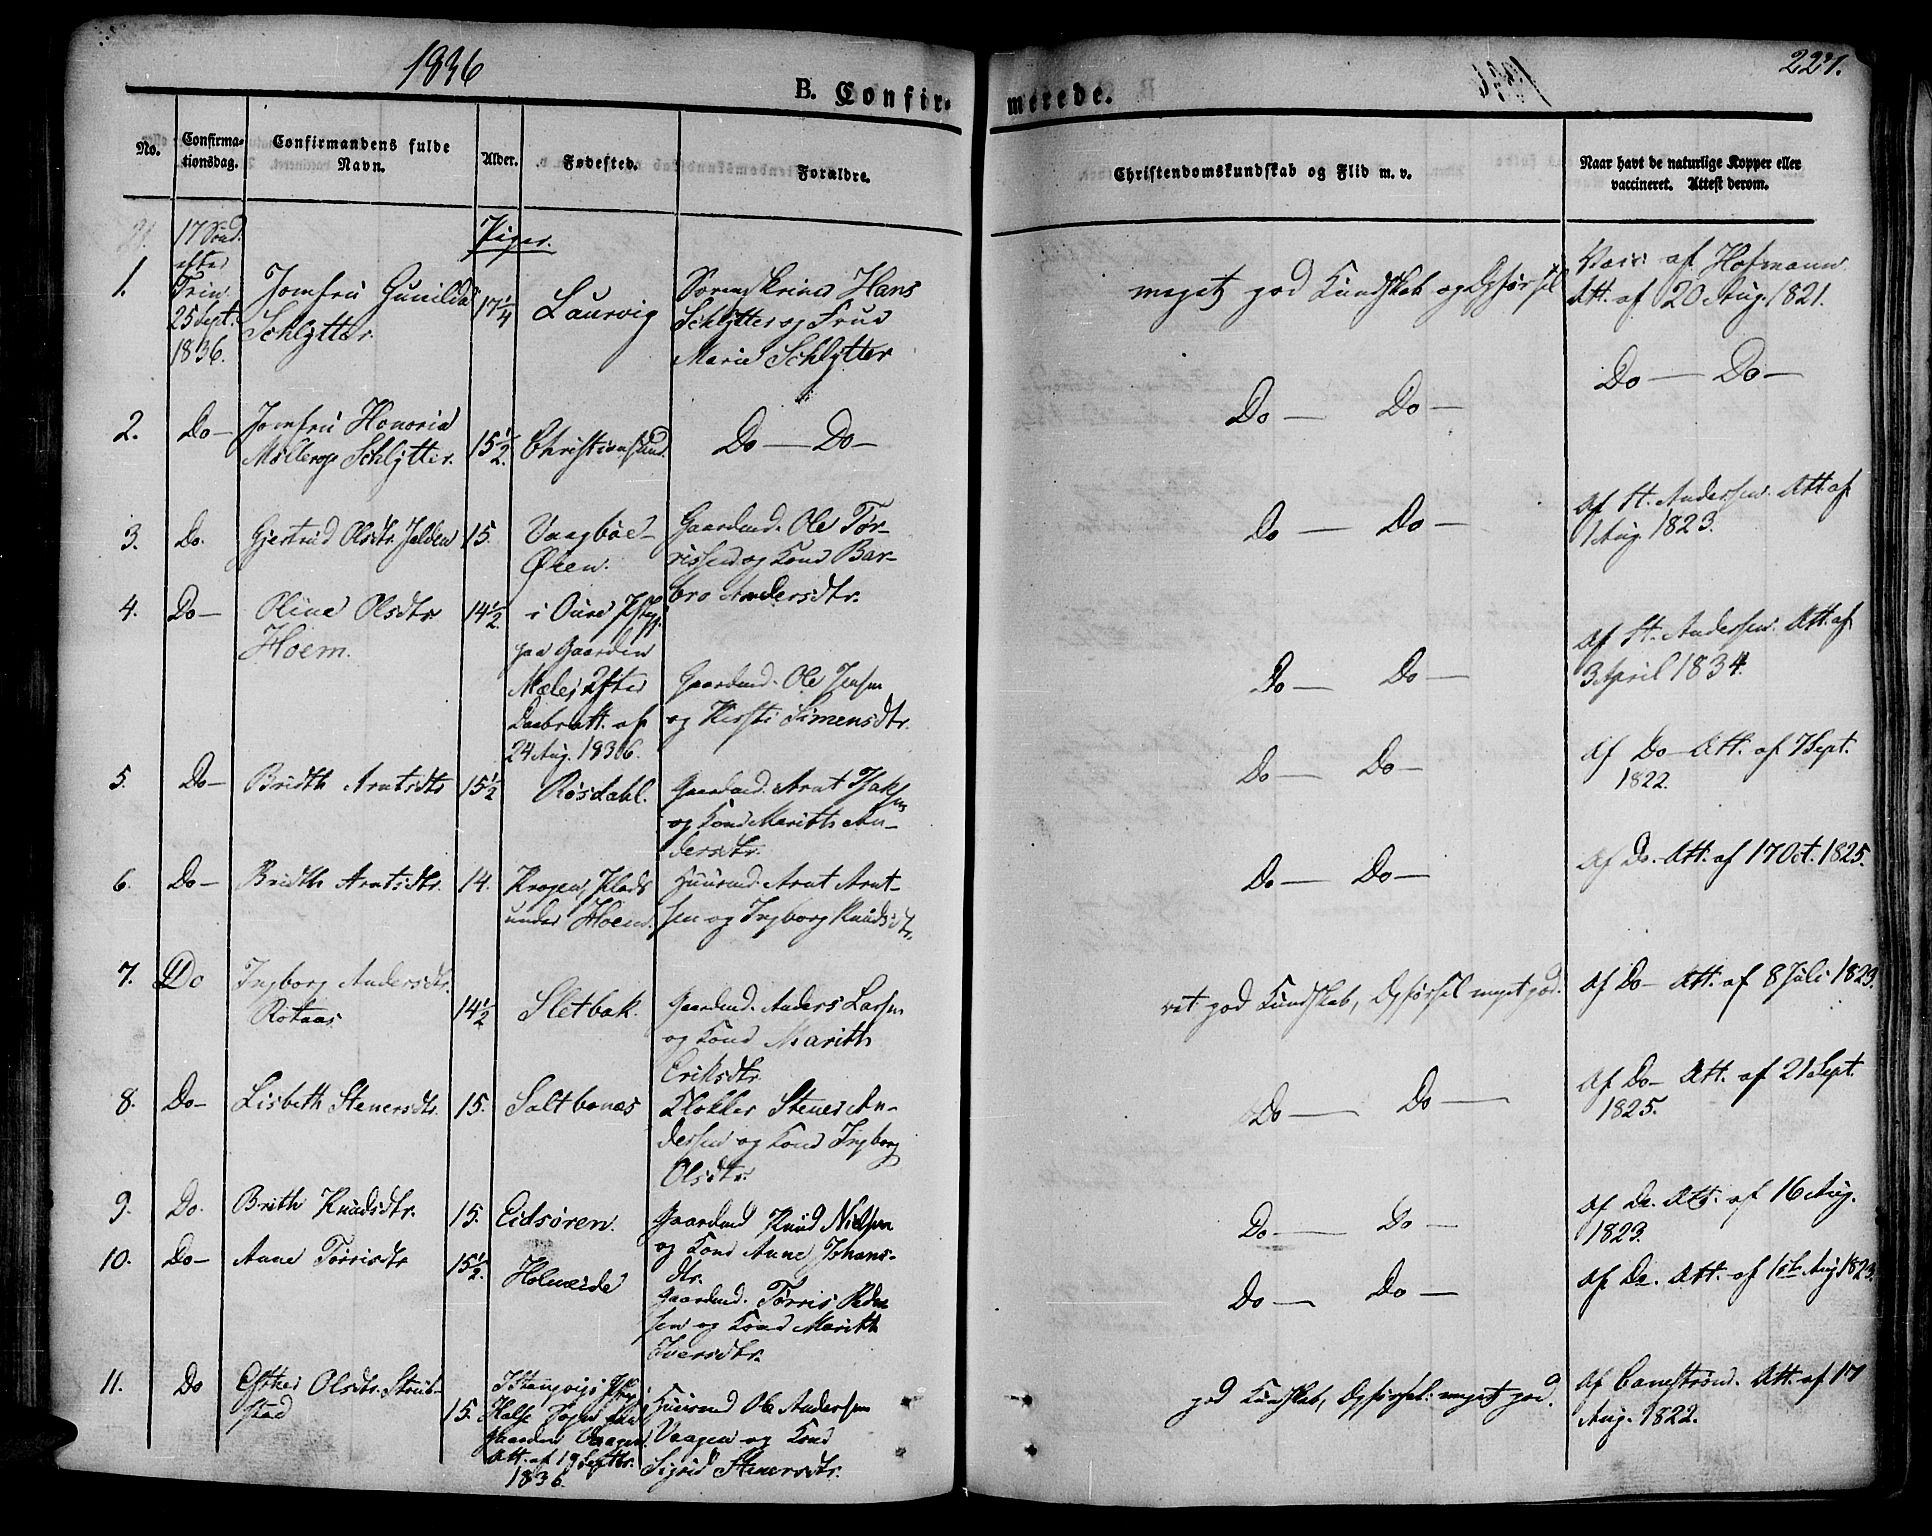 1836
227.
B. Confir-
merede.
No.
Confirma-
tionsdag.
Confirmandens fulde
Navn.
Alder.
Fødested.
Forældre.
Christendomskundskab og Flid m. v.
Naar havt de naturlige Kopper eller
vaccineret. Attest derom.
Piger.
1.
17 Sønd.
efter
Trin
25 Sept.
1836.
Jomfru Gunilda
Schlytter.
17 1/4
Laurvig
Sorenskriver Hans
Schlytter og Frue
Marie Schlytter
meget god Kundskab og Opførsel
Vacc. af Hofmann
Att. af 20 Aug. 1821.
2.
Do—
Jomfru Honoria
Møllerop Schlytter.
15 1/2.
Christiansund.
Do— Do—
Do— Do—
Do— Do—
3.
Do.
Gjertrud Olsdtr Jelden
15.
Vaagbøe-
Øren.
Gaardmd. Ole Tør-
rissen og Kone Bar-
bro Andersdtr.
Do— Do—
Af St. Andersen. Att. af
1 Aug. 1823.
4.
Do—
Oline Olsdtr.
Hoem.
14 1/2.
i Oure
paa Gaarden
efter
Daabsatt. af
24 Aug. 1836.
Gaardmd. Ole Jensen
og Kirsti Simensdtr.
Do— Do—
Af St. Andersen. Att. af
3 April 1834.
5.
Do—
Bridth Arntsdtr
15 1/2
Røsdahl.
Gaardmd. Arnt
og Kone Marith An-
dersdtr.
Do— Do—
Af Do— Att. af 7 Sept.
1822.
6.
Do—
Bridth Arntsdtr.
14.
Krogen, Plads
under Hoem.
Huusmd. Arnt Arnt-
sen og Ingborg Knudsdtr.
Do— Do—
Af Do. Att. af 17 Oct. 1825.
7.
Do
Ingborg Andersdtr.
Rotaas.
14 1/2
Sletbak.
Gaardmd. Anders Larsen
og Kone Marith
Eriksdtr.
ret god Kundskab, Opførsel meget god.
Af Do— Att. af 8 Juli 1823.
8.
Do—
Lisbeth Stenersdtr.
15.
Saltbones
Klokker Stener An-
dersen og Kone Ingborg
Olsdtr.
Do— Do—
Af Do— Att. af 21 Sept.
1825.
9.
Do.
Brith Knudsdtr.
15.
Eidsøren.
Gaardmd Knud Nielsen
og Kone Anne Johans-
dtr.
Do— Do—
Af Do. Att. af 16 Aug.
1823.
10.
Do—
Anne Tørrisdtr
15 1/2.
Holmeide
Gaardmd. Tørris Peder
sen og Kone Marith
Iversdtr.
Do— Do—
Af Do. Att. af 1ste Aug 1823.
11.
Do
Esther Olsdtr.
stad
15.
I Stangvigs
Halse Sogn paa
Gaarden Vaagen.
Att. af 19 Septbr.
1836.
Huusmd Ole Andersen
Vaagen og Kone
Sigrid Stenersdtr.
god Kundskab, Opførsel meget god.
Af Att. af 17
Aug. 1822.